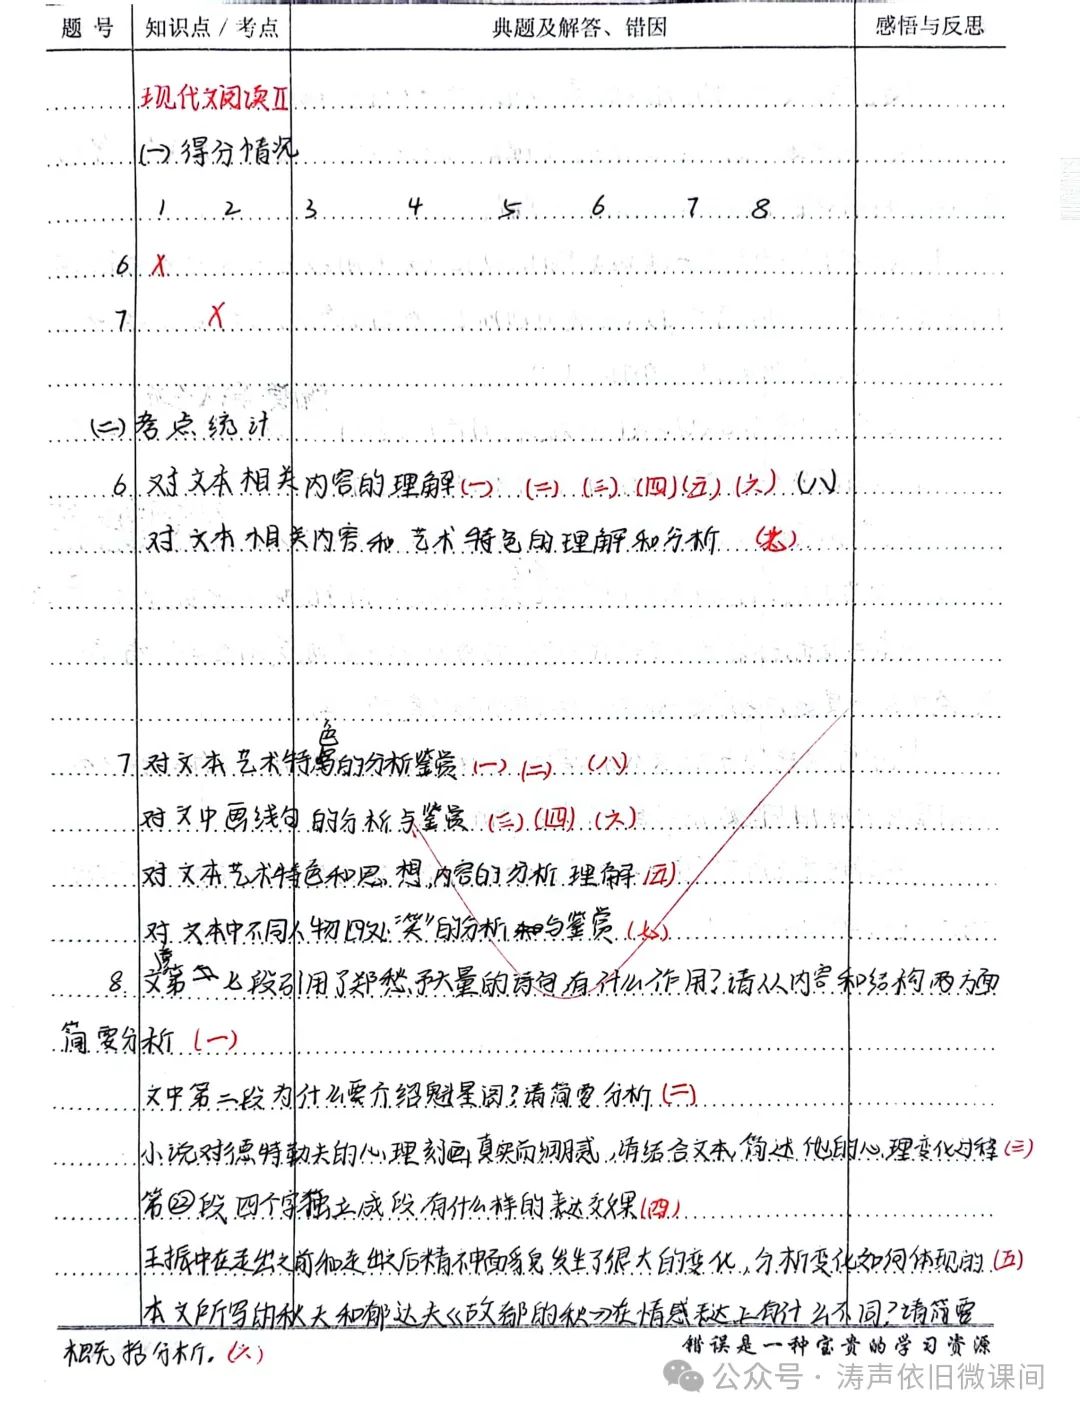 题 号 知识点 / 考点 典题及解答、错因 感悟与反思
现代文阅读Ⅱ
(一) 得分情况
1 2 3 4 5 6 7 8
6 X
7 X
(二) 考点统计
6 对文本相关内容的理解 (一) (二) (三) (四) (五) (六) (八)
对文本相关内容和艺术特色的理解和分析 (七)
7 对文本艺术特色的分析鉴赏 (一) (二) (八)
对文中画线句的分析与鉴赏 (三) (四) (六)
对文本艺术特色和思想内容的分析理解 (五)
对文本中不同人物四处“笑”的分析与鉴赏 (七)
8 文章第七段引用了郑愁予大量的诗句有什么作用?请从内容和结构两方面
简要分析 (一)
文中第二段为什么要介绍魁星阁?请简要分析 (二)
小说对德特勒夫的心理刻画真实而细腻,请结合文本,简述他的心理变化过程 (三)
第㉒段四个字独立成段有什么样的表达效果 (四)
王振中在走出之前和走出之后精神面貌发生了很大的变化,分析变化如何体现的 (五)
本文所写的秋天和郁达夫《故都的秋》在情感表达上有什么不同?请简要
概括分析。(六)
错误是一种宝贵的学习资源
公众号 · 涛声依旧微课间